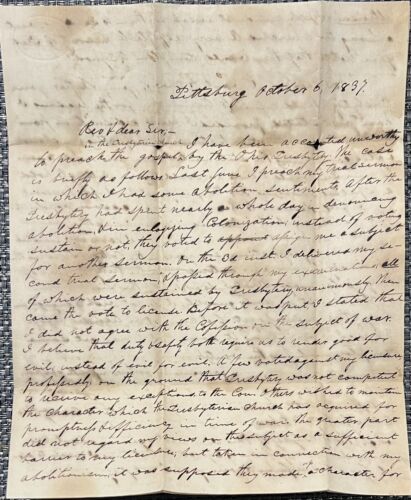 Pittsburg October 6, 1837.
Rev & dear Sir,—
in the Presbyterian
I have been accounted unworthy
to preach the gospel by the Ohio Presbytery. The case
is briefly as follows. Last June I preach my trial sermon
in which I had some abolition sentiments. After the
Presbytery had spent nearly a whole day in denouncing
abolition, & in eulogizing Colonization, instead of voting
sustain or not, they voted to appoint assign me a subject
for another sermon. On the 3d inst. I delivered my se-
cond trial sermon, & passed through my examinations, all
of which were sustained by Presbytery unanimously. Then
came the vote to license. Before it was put I stated that
I did not agree with the Confession on the subject of war.
I believe that duty & safety both require us to render good for
evil, instead of evil for evil. A few voted against my licensure
professedly on the ground that Presbytery was not competent
to receive any exceptions to the Con. Others wished to maintain
the character which the Presbyterian Church has acquired for
promptness & efficiency in times of war. The greater part
did not regard my views on the subject as a sufficient
barrier to my licensure, but taken in connection with my
abolitionism, it was supposed they made a character for